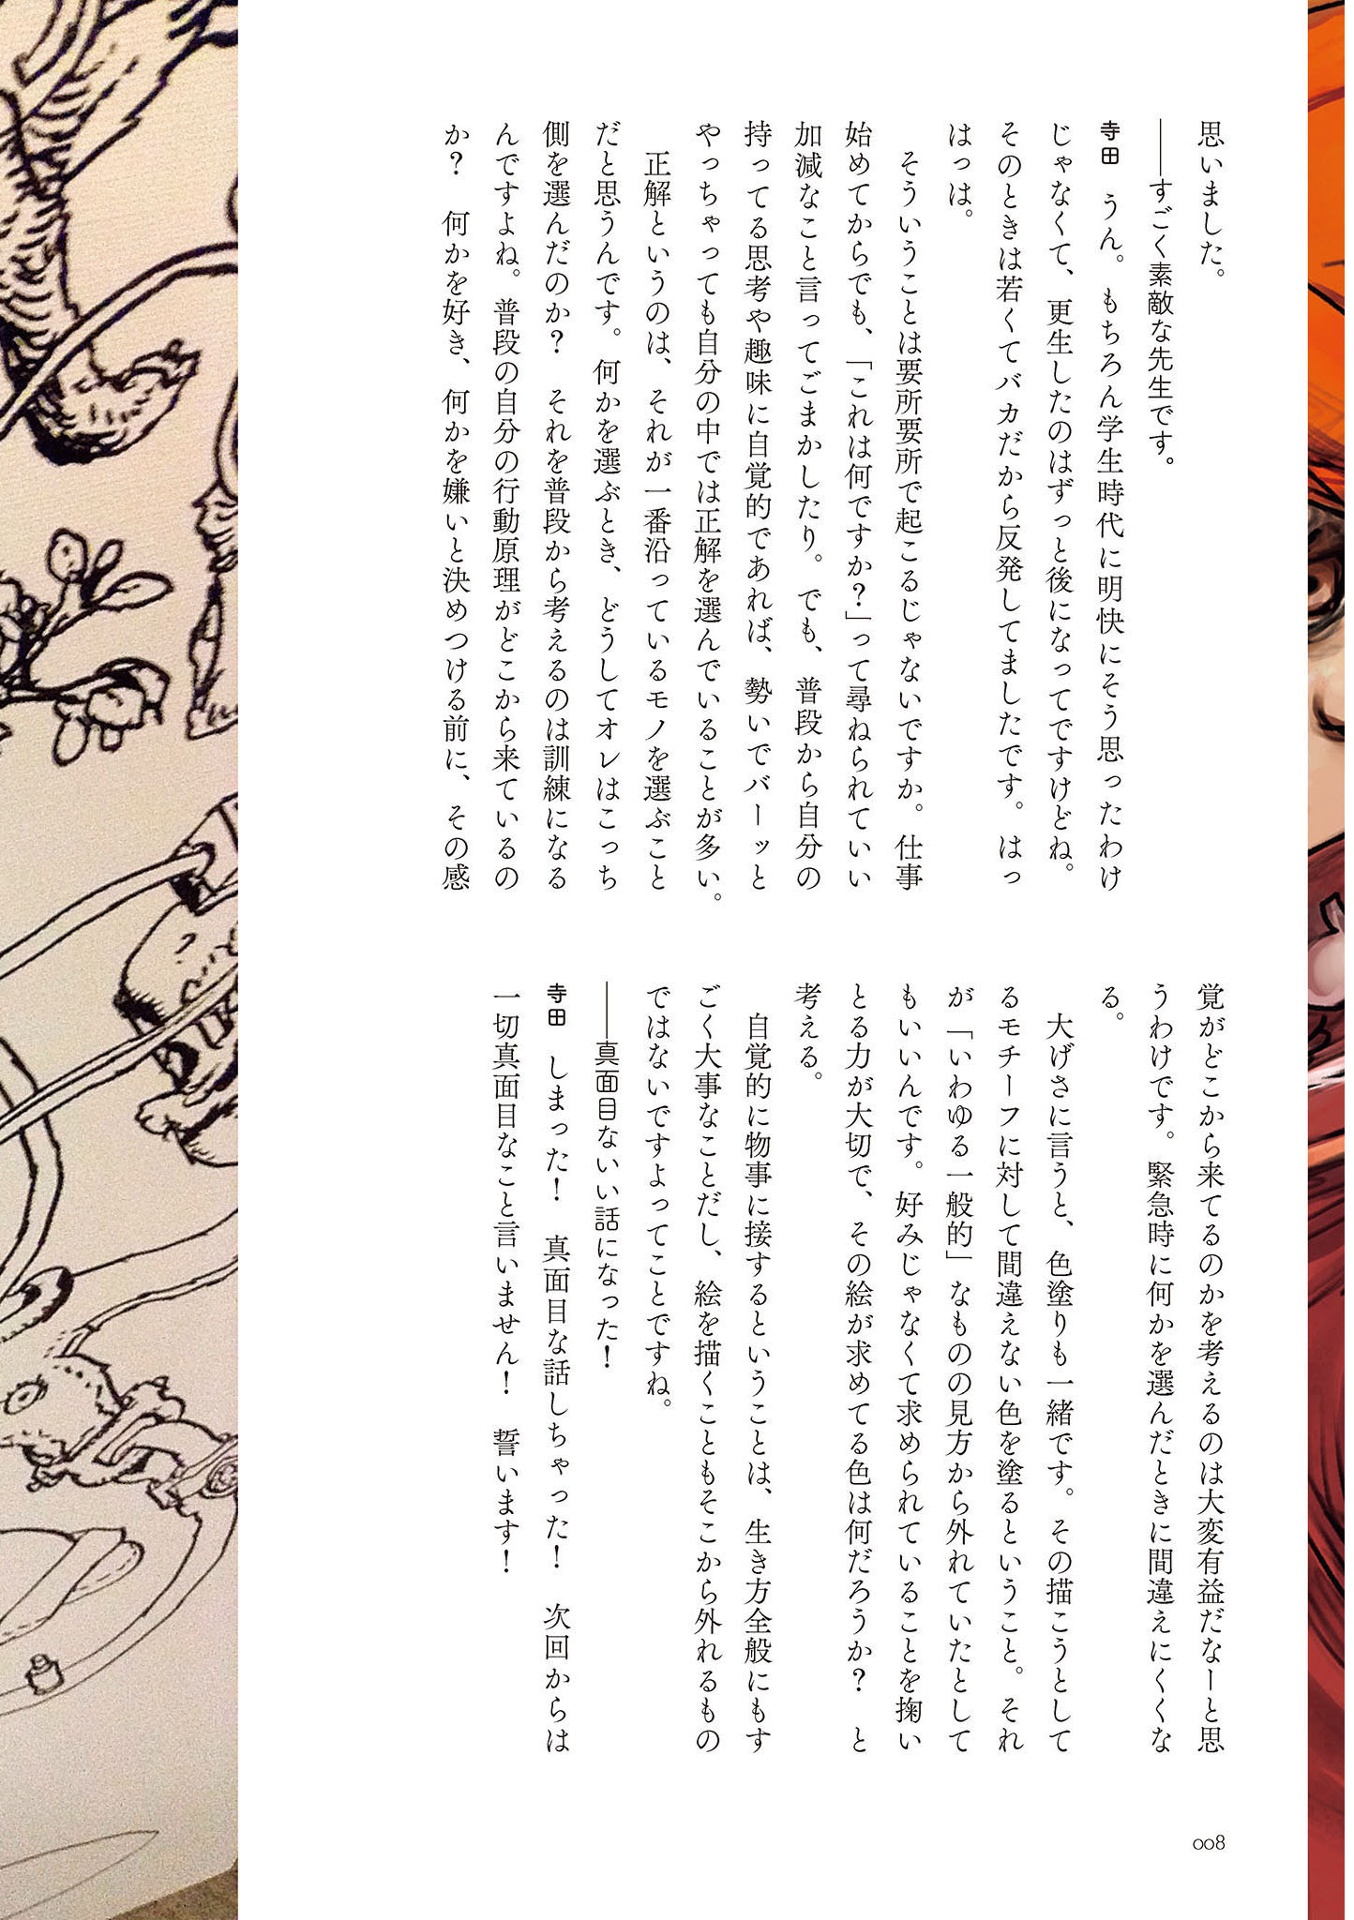 思いました。
――すごく素敵な先生です。
寺田　うん。もちろん学生時代に明快にそう思ったわけ
じゃなくて、更生したのはずっと後になってですけどね。
そのときは若くてバカだから反発してましたです。はっ
はっは。
　そういうことは要所要所で起こるじゃないですか。仕事
始めてからでも、「これは何ですか？」って尋ねられていい
加減なこと言ってごまかしたり。でも、普段から自分の
持ってる思考や趣味に自覚的であれば、勢いでバーッと
やっちゃっても自分の中では正解を選んでいることが多い。
　正解というのは、それが一番沿っているモノを選ぶこと
だと思うんです。何かを選ぶとき、どうしてオレはこっち
側を選んだのか？　それを普段から考えるのは訓練になる
んですよね。普段の自分の行動原理がどこから来ているの
か？　何かを好き、何かを嫌いと決めつける前に、その感
覚がどこから来てるのかを考えるのは大変有益だなーと思
うわけです。緊急時に何かを選んだときに間違えにくくな
る。
　大げさに言うと、色塗りも一緒です。その描こうとして
るモチーフに対して間違えない色を塗るということ。それ
が「いわゆる一般的」なものの見方から外れていたとして
もいいんです。好みじゃなくて求められていることを掬い
とる力が大切で、その絵が求めてる色は何だろうか？　と
考える。
　自覚的に物事に接するということは、生き方全般にもす
ごく大事なことだし、絵を描くこともそこから外れるもの
ではないですよってことですね。
――真面目ないい話になった！
寺田　しまった！　真面目な話しちゃった！　次回からは
一切真面目なこと言いません！　誓います！
008